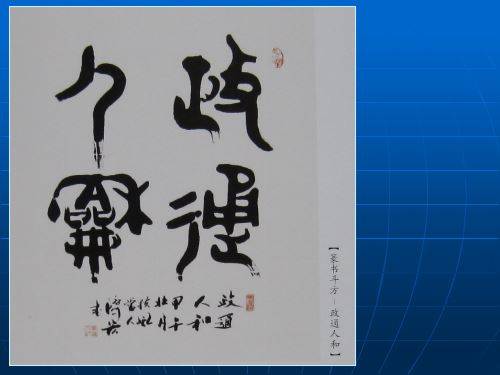 政通
人龢
政通
人和
甲午
壮月
【篆书斗方－政通人和】